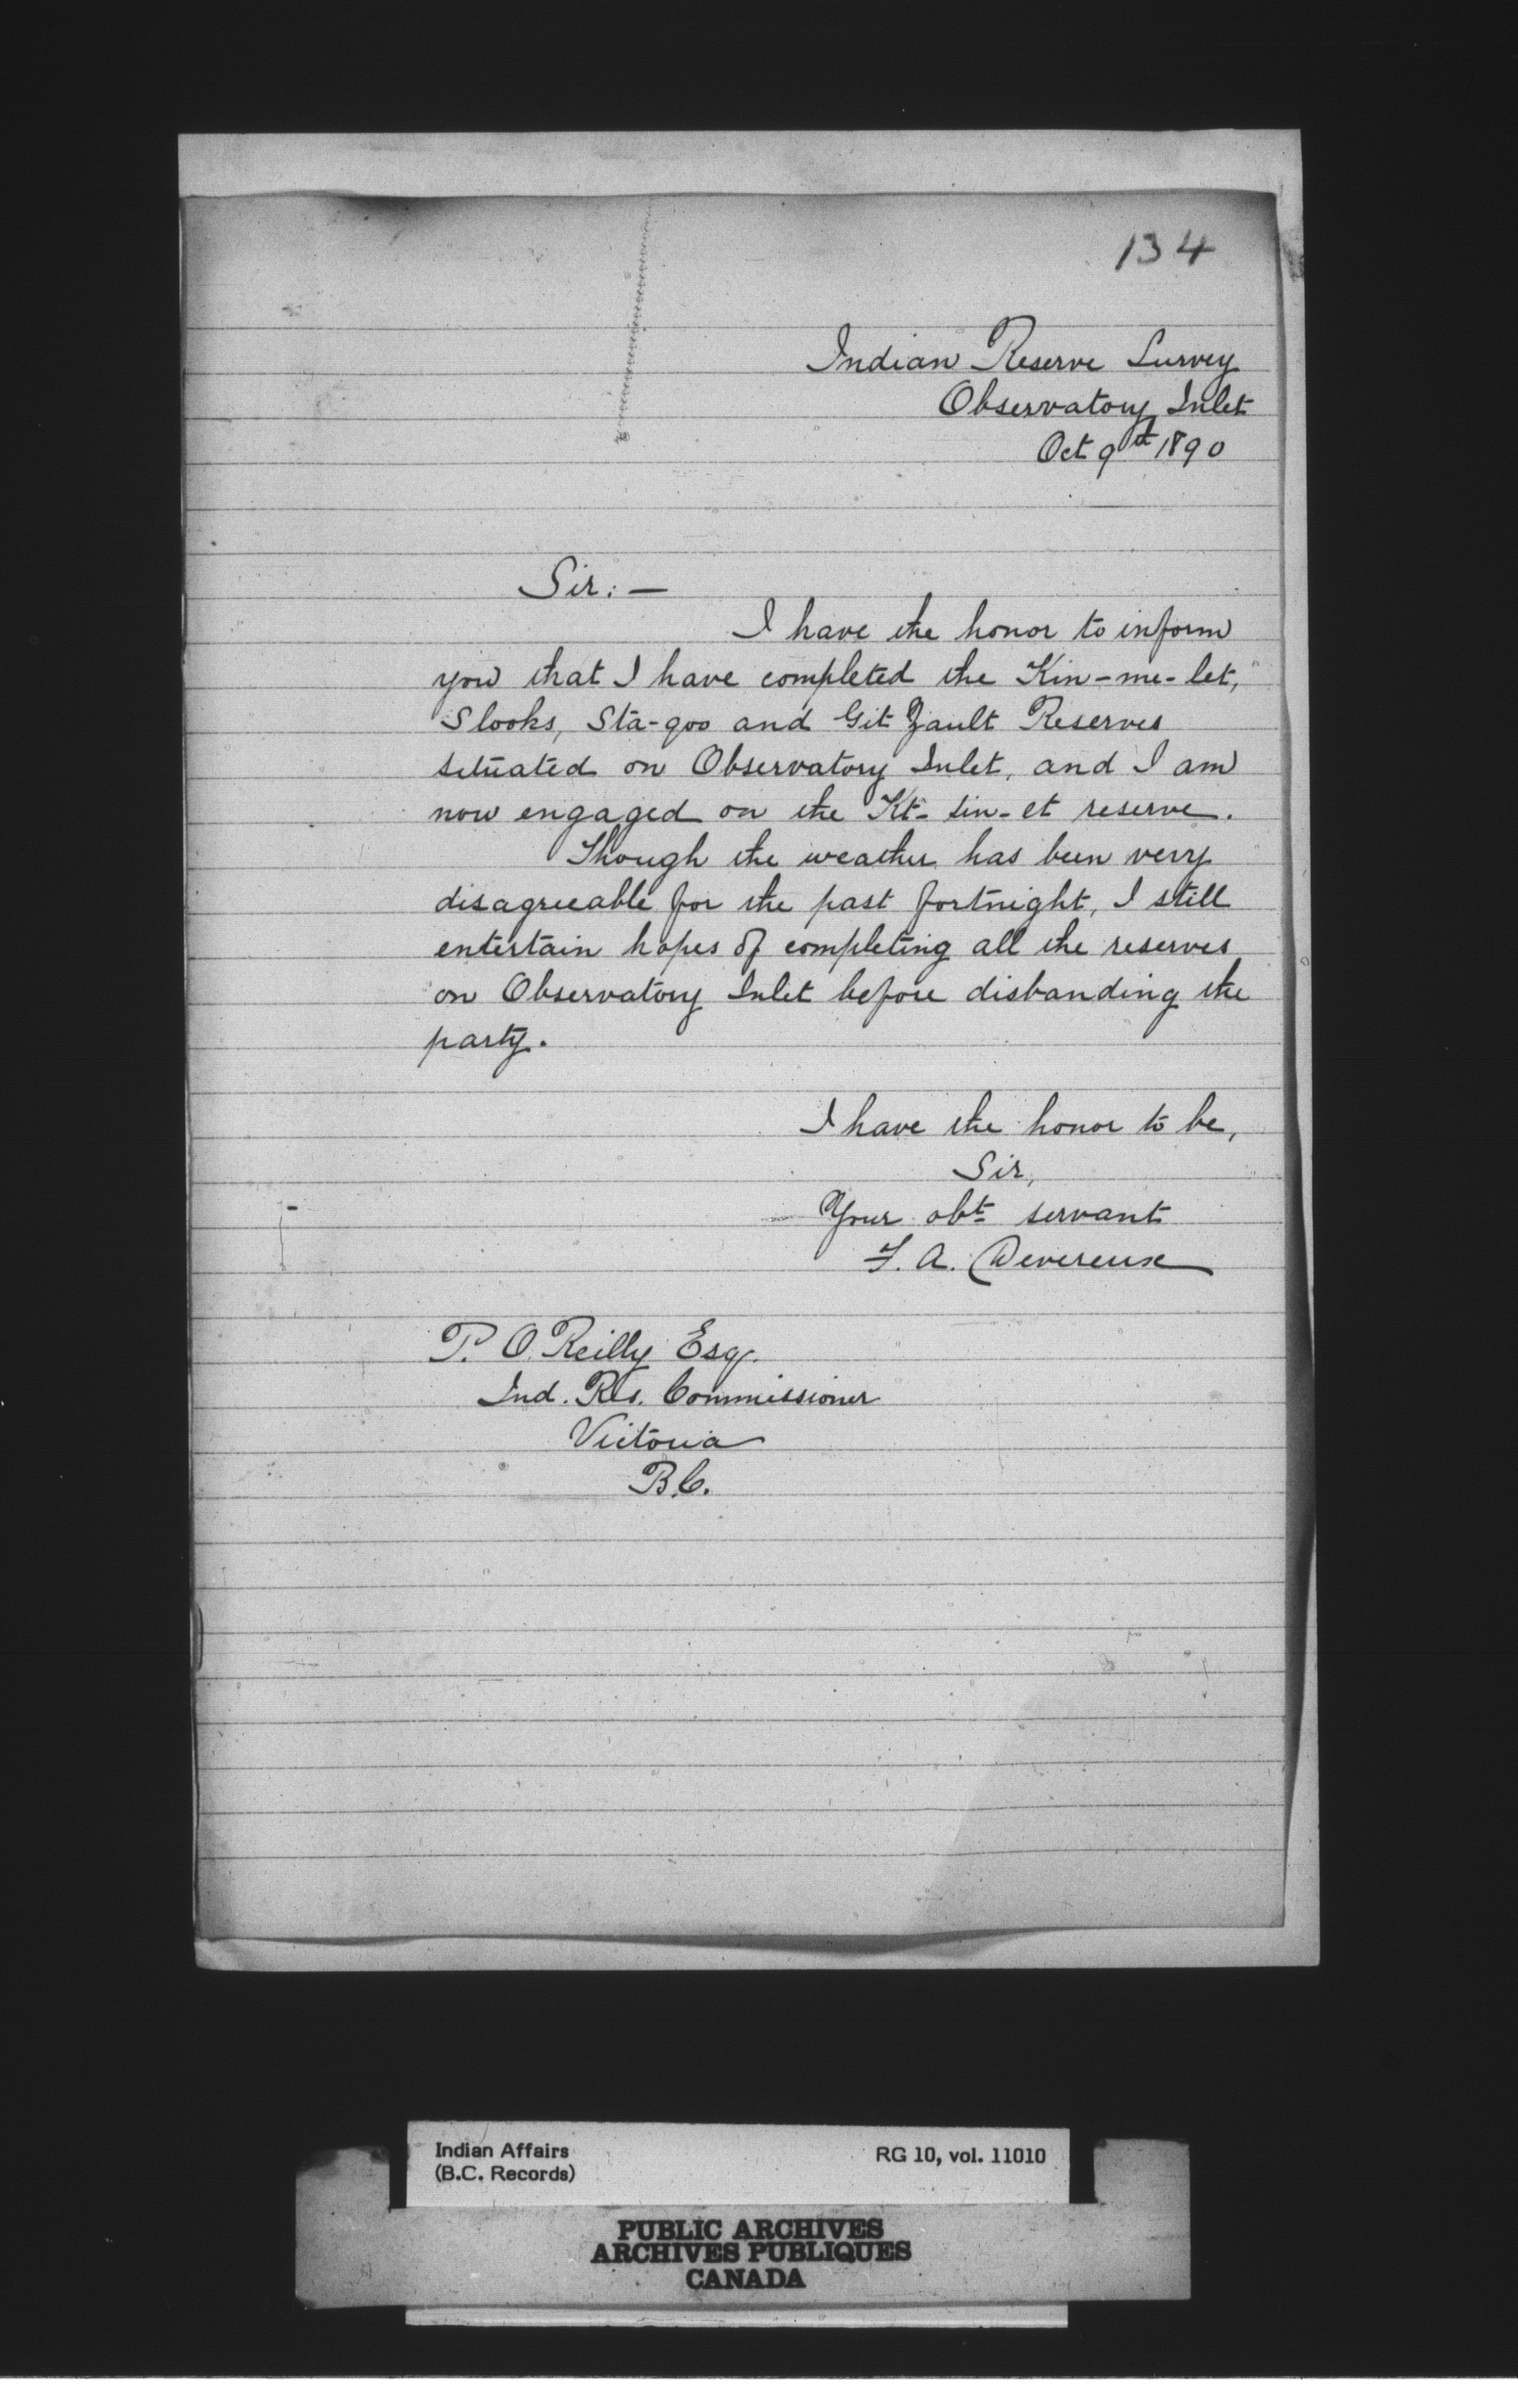 134
Indian Reserve Survey
Observatory Inlet
Oct 9th 1890
Sir:—
I have the honor to inform
you that I have completed the Kin-me-let,
Slooks, Sta-qoo and Git Zault Reserves
situated on Observatory Inlet, and I am
now engaged on the Kt-sin-et reserve.
Though the weather has been very
disagreeable for the past fortnight, I still
entertain hopes of completing all the reserves
on Observatory Inlet before disbanding the
party.
I have the honor to be,
Sir,
Your obt servant
F. A. Devereux
P. O'Reilly Esq.
Ind. Res. Commissioner
Victoria
B.C.
Indian Affairs RG 10, vol. 11010
(B.C. Records)
PUBLIC ARCHIVES
ARCHIVES PUBLIQUES
CANADA